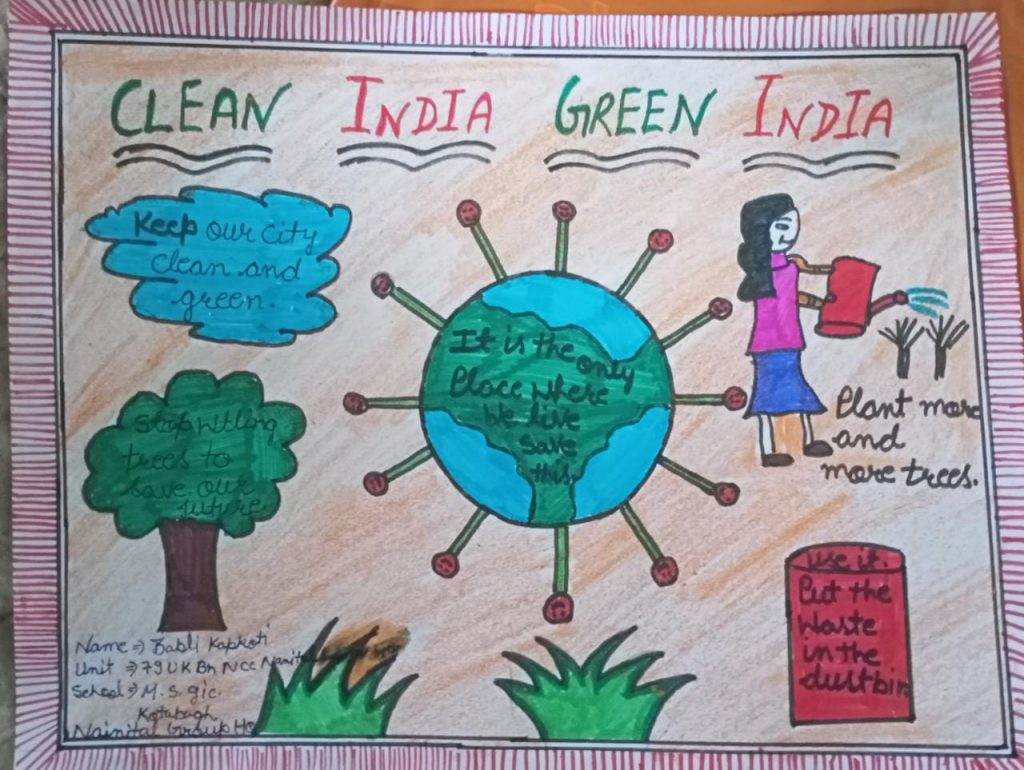 CLEAN INDIA GREEN INDIA
Keep our city
clean and
green.
It is the only
Place where
We live
save
this.
Plant more
and
more trees.
Stop
trees to
save our
future
use it.
Put the
Waste
in the
dustbin
Name => Babli Kapkoti
Unit => 79 UK Bn NCC
School => M. S. gic.
Kotabagh
Nainital Group HQ